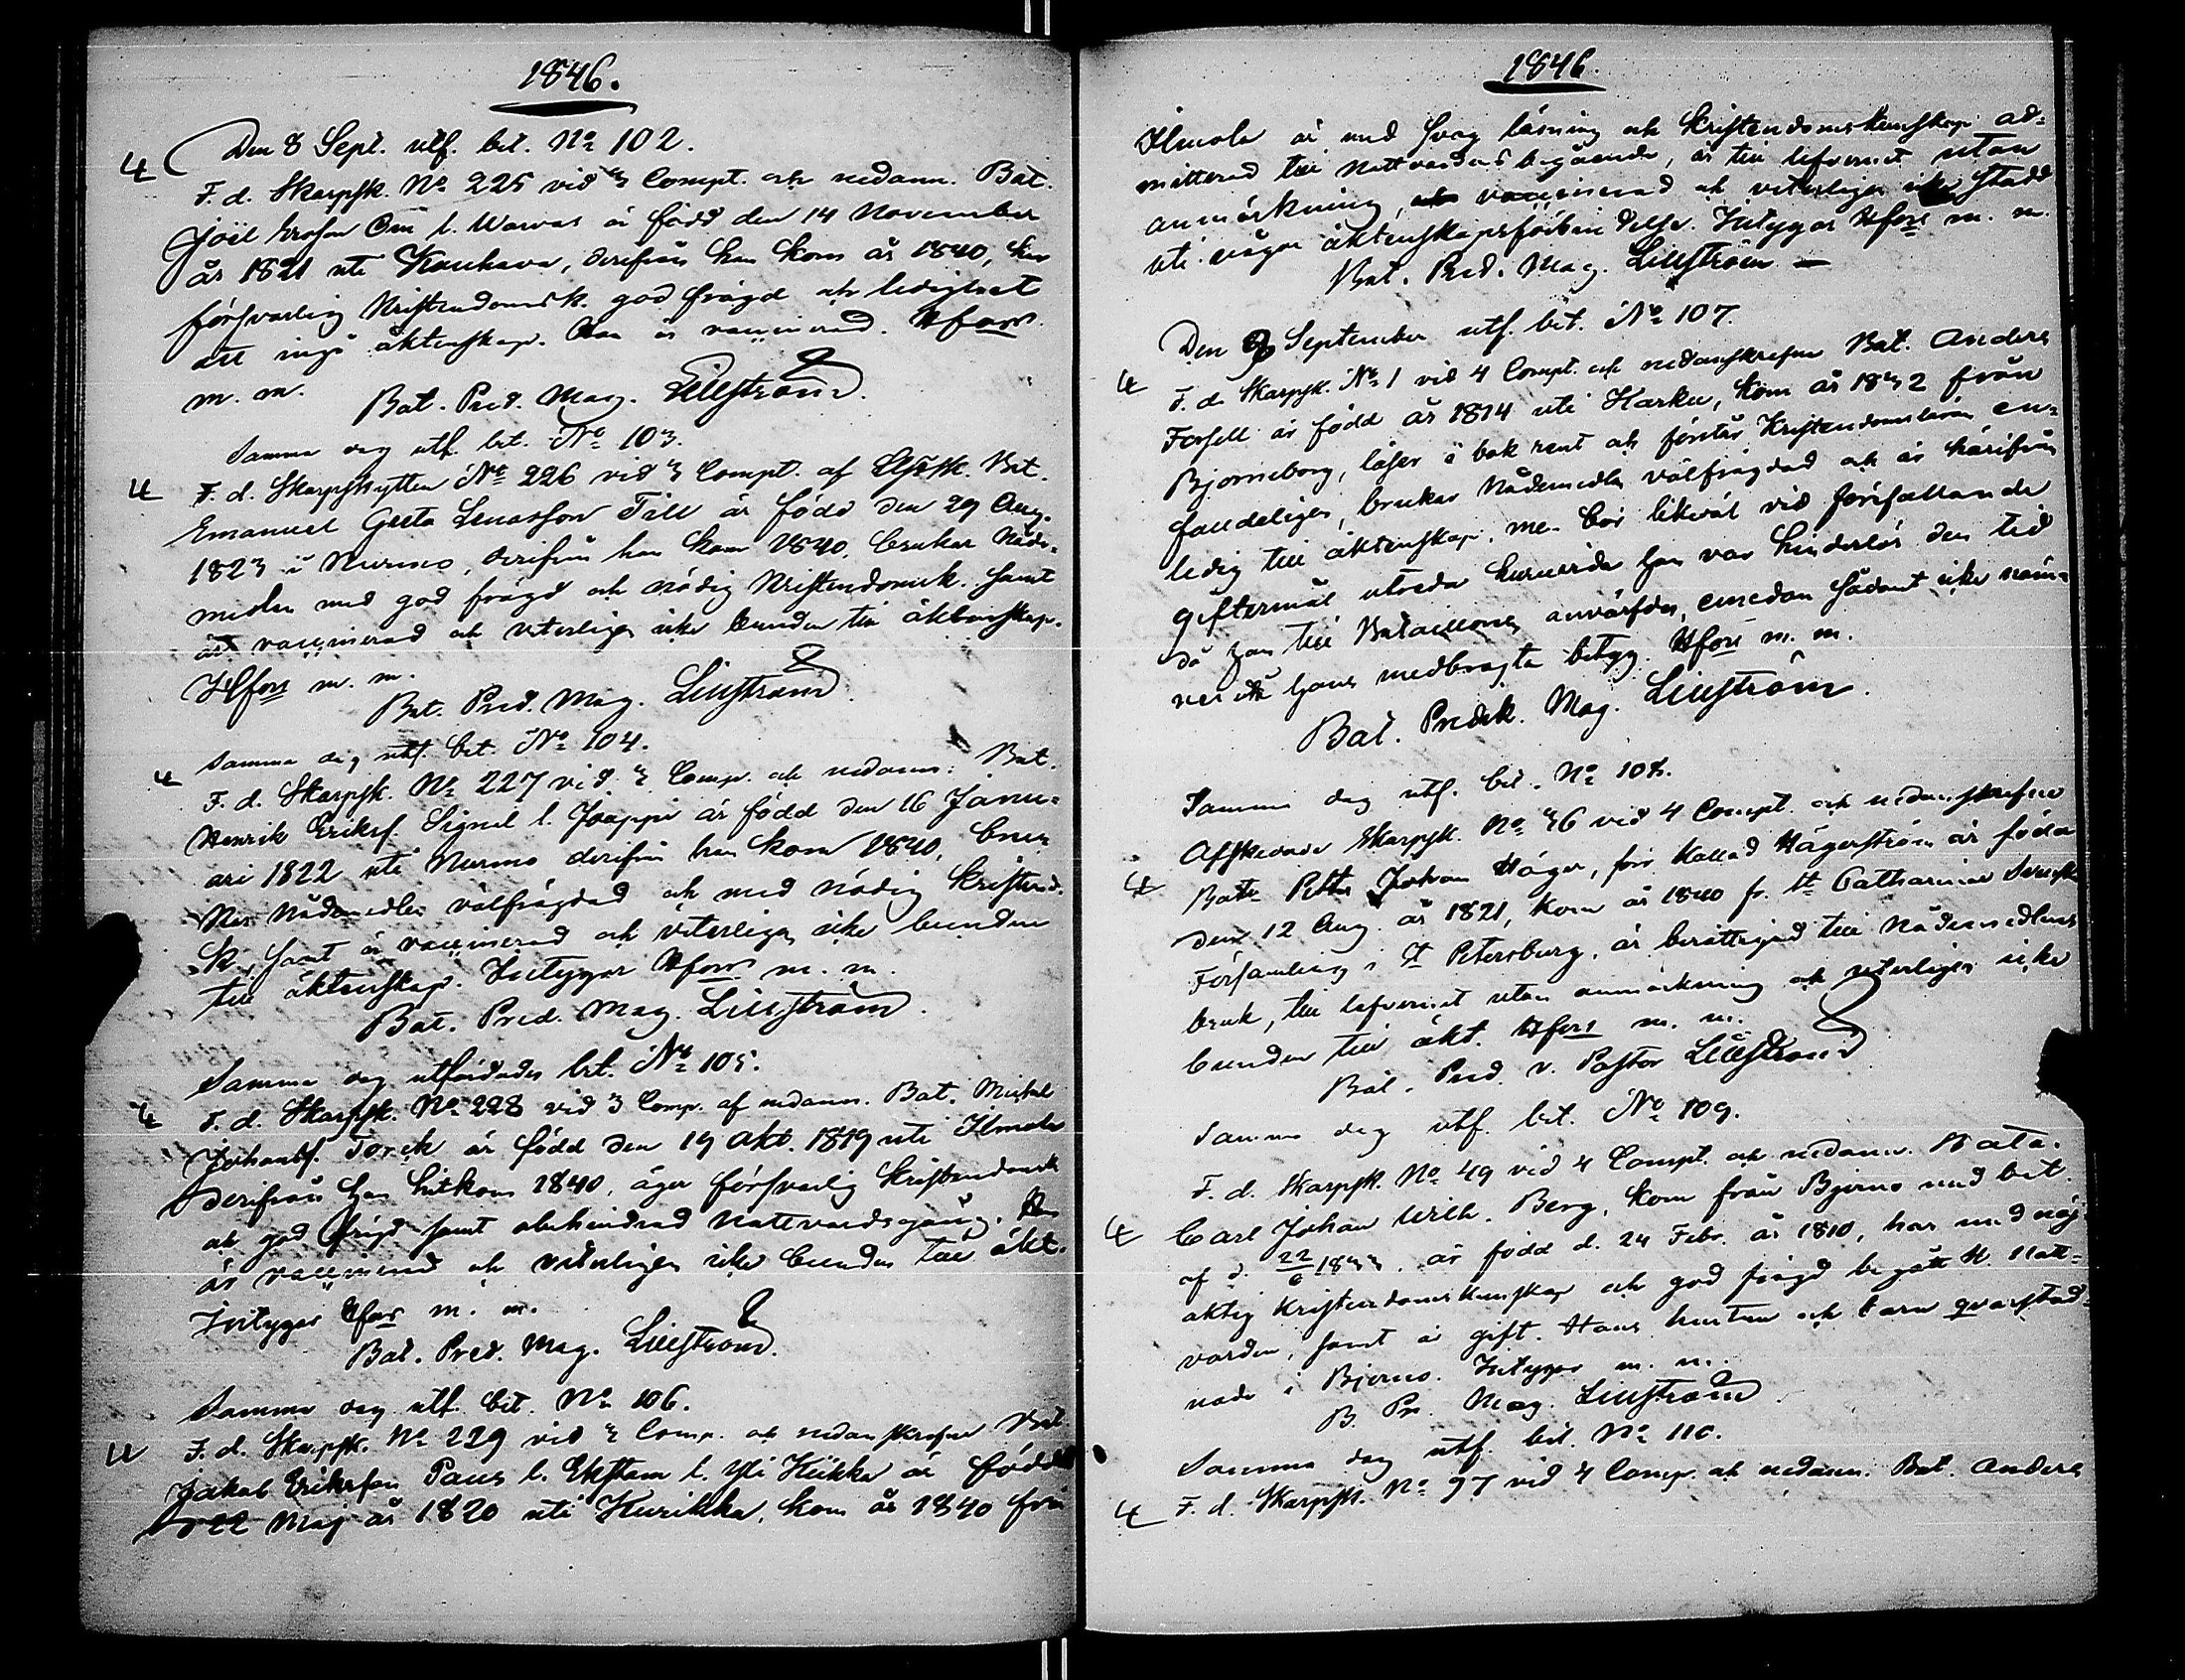 1846.
Den 8 Sept. utf. bet. No 102.
4 F. d. Skarpsk. No 225 vid 3 Compt. och nedann. Bat.
Joel Ersson l. Warvas är född den 14 November
år 1821 uti Kauhava, derifrån han kom år 1840, har
försvarlig Kristendomsk. god frägd och ledighet
att ingå äktenskap. Han är vaccinerad. Hfors
m. m.
Bat. Pred. Mag. Lillström.
Samma dag utf. bet. No 103.
4 F. d. Skarpskytten No 226 vid 3 Compt. af Bat.
Emanuel Gusta Täll är född den 29 Aug.
1823 i Nurmo, derifrån han kom 1840, brukar Nåde-
medlen med god frägd och nödig Kristendomsk. samt
är vaccinerad och veterligen icke bunden till äktenskap.
Hfors m. m.
Bat. Pred. Mag. Lillström
Samma dag utf. bet. No 104.
4 F. d. Skarpsk. No 227 vid 3 Comp. och nedann. Bat.
Henrik Eriksf. Signel l. Jaappi är född den 16 Janu-
ari 1822 uti Nurmo derifrån han kom 1840, bru-
kar nådemedlen välfrägdad och med nödig Kristend.
k., samt är vaccinerad och veterligen icke bunden
till äktenskap. Intygar Hfors m. m.
Bat. Pred. Mag. Lillström.
Samma dag utfärdades bet. No 105.
4 F. d. Skarpsk. No 228 vid 3 Comp. af nedann. Bat. Mickel
Johansf. Torck är född den 19 Okt. 1819 uti Ilmola
derifrån han hitkom 1840, äger försvarlig Kristendomsk
och god frägd samt obehindrad nattvardsgång. Han
är vaccinerad och veterligen icke bunden till äkt.
Intygar Hfors m. m.
Bat. Pred. Mag. Lillström.
Samma dag utf. bet. No 106.
4 F. d. Skarpsk. No 229 vid 3 Comp. och nedanskrefne Bat
Jakob Eriksson Paus l. Ekstam l. Yli Kükka är född
22 Maj år 1820 uti Kurikka, kom år 1840 från
1846.
Ilmola är med svag läsning och Kristendomskunskap ad-
mitterad till Nattvardens begående, är till lefvernet utan
anmärkning, vaccinerad och veterligen icke stadd
uti någon äktenskapsförbindelse. Intygar Hfors m. m.
Bat. Pred. Mag. Lillström
Den 9 September utf. bet. No 107.
4 F. d. Skarpsk. No 1 vid 4 Compt. och nedanskrefne Bat. Anders
Forsell är född år 1814 uti Harku, kom år 1832 från
Bjorneborg, läser i bok rent och förstår Kristendomsläran en-
faldeligen, brukar Nådemedlen välfrägdad och är härifrån
ledig till äktenskap, men bör likväl vid förefallande
giftermål utreda huruvida han var hinderlös den tid
då han till Bataillonen anvärfdes, emedan sådant icke näm-
nes uti hans medbragta betyg. Hfors m. m.
Bat. Predik. Mag. Lillström.
Samma dag utf. bet. No 108.
Afskedade Skarpsk. No 36 vid 4 Compt. och nedanskrefne
4 Bat. Petter Johan Häger, förr kallad Hägerström är född
den 12 Aug. år 1821, kom år 1840 fr. St Catharinae Svenska
Församling i St Petersburg, är berättigad till Nådemedlens
bruk, till lefvernet utan anmärkning och veterligen icke
bunden till äkt. Hfors m. m.
Bat. Pred. v. Pastor Lillström
Samma dag utf. bet. No 109.
F. d. Skarpsk. No 49 vid 4 Compt. och nedann. Bata.
4 Carl Johan Wilh. Berg, kom från Bjerno med bet.
af d. 22/6 1833. är född d. 24 Febr. år 1810, har med nöj-
aktig Kristendomskunskap och god frägd begått H. Natt-
varden, samt är gift. Hans hustru och barn qvarstad-
nade i Bjerno. Intygar m. m.
B. Pr. Mag. Lillström
Samma dag utf. bet. No 110.
4 F. d. Skarpsk. No 97 vid 4 Comp. och nedann. Bat. Anders